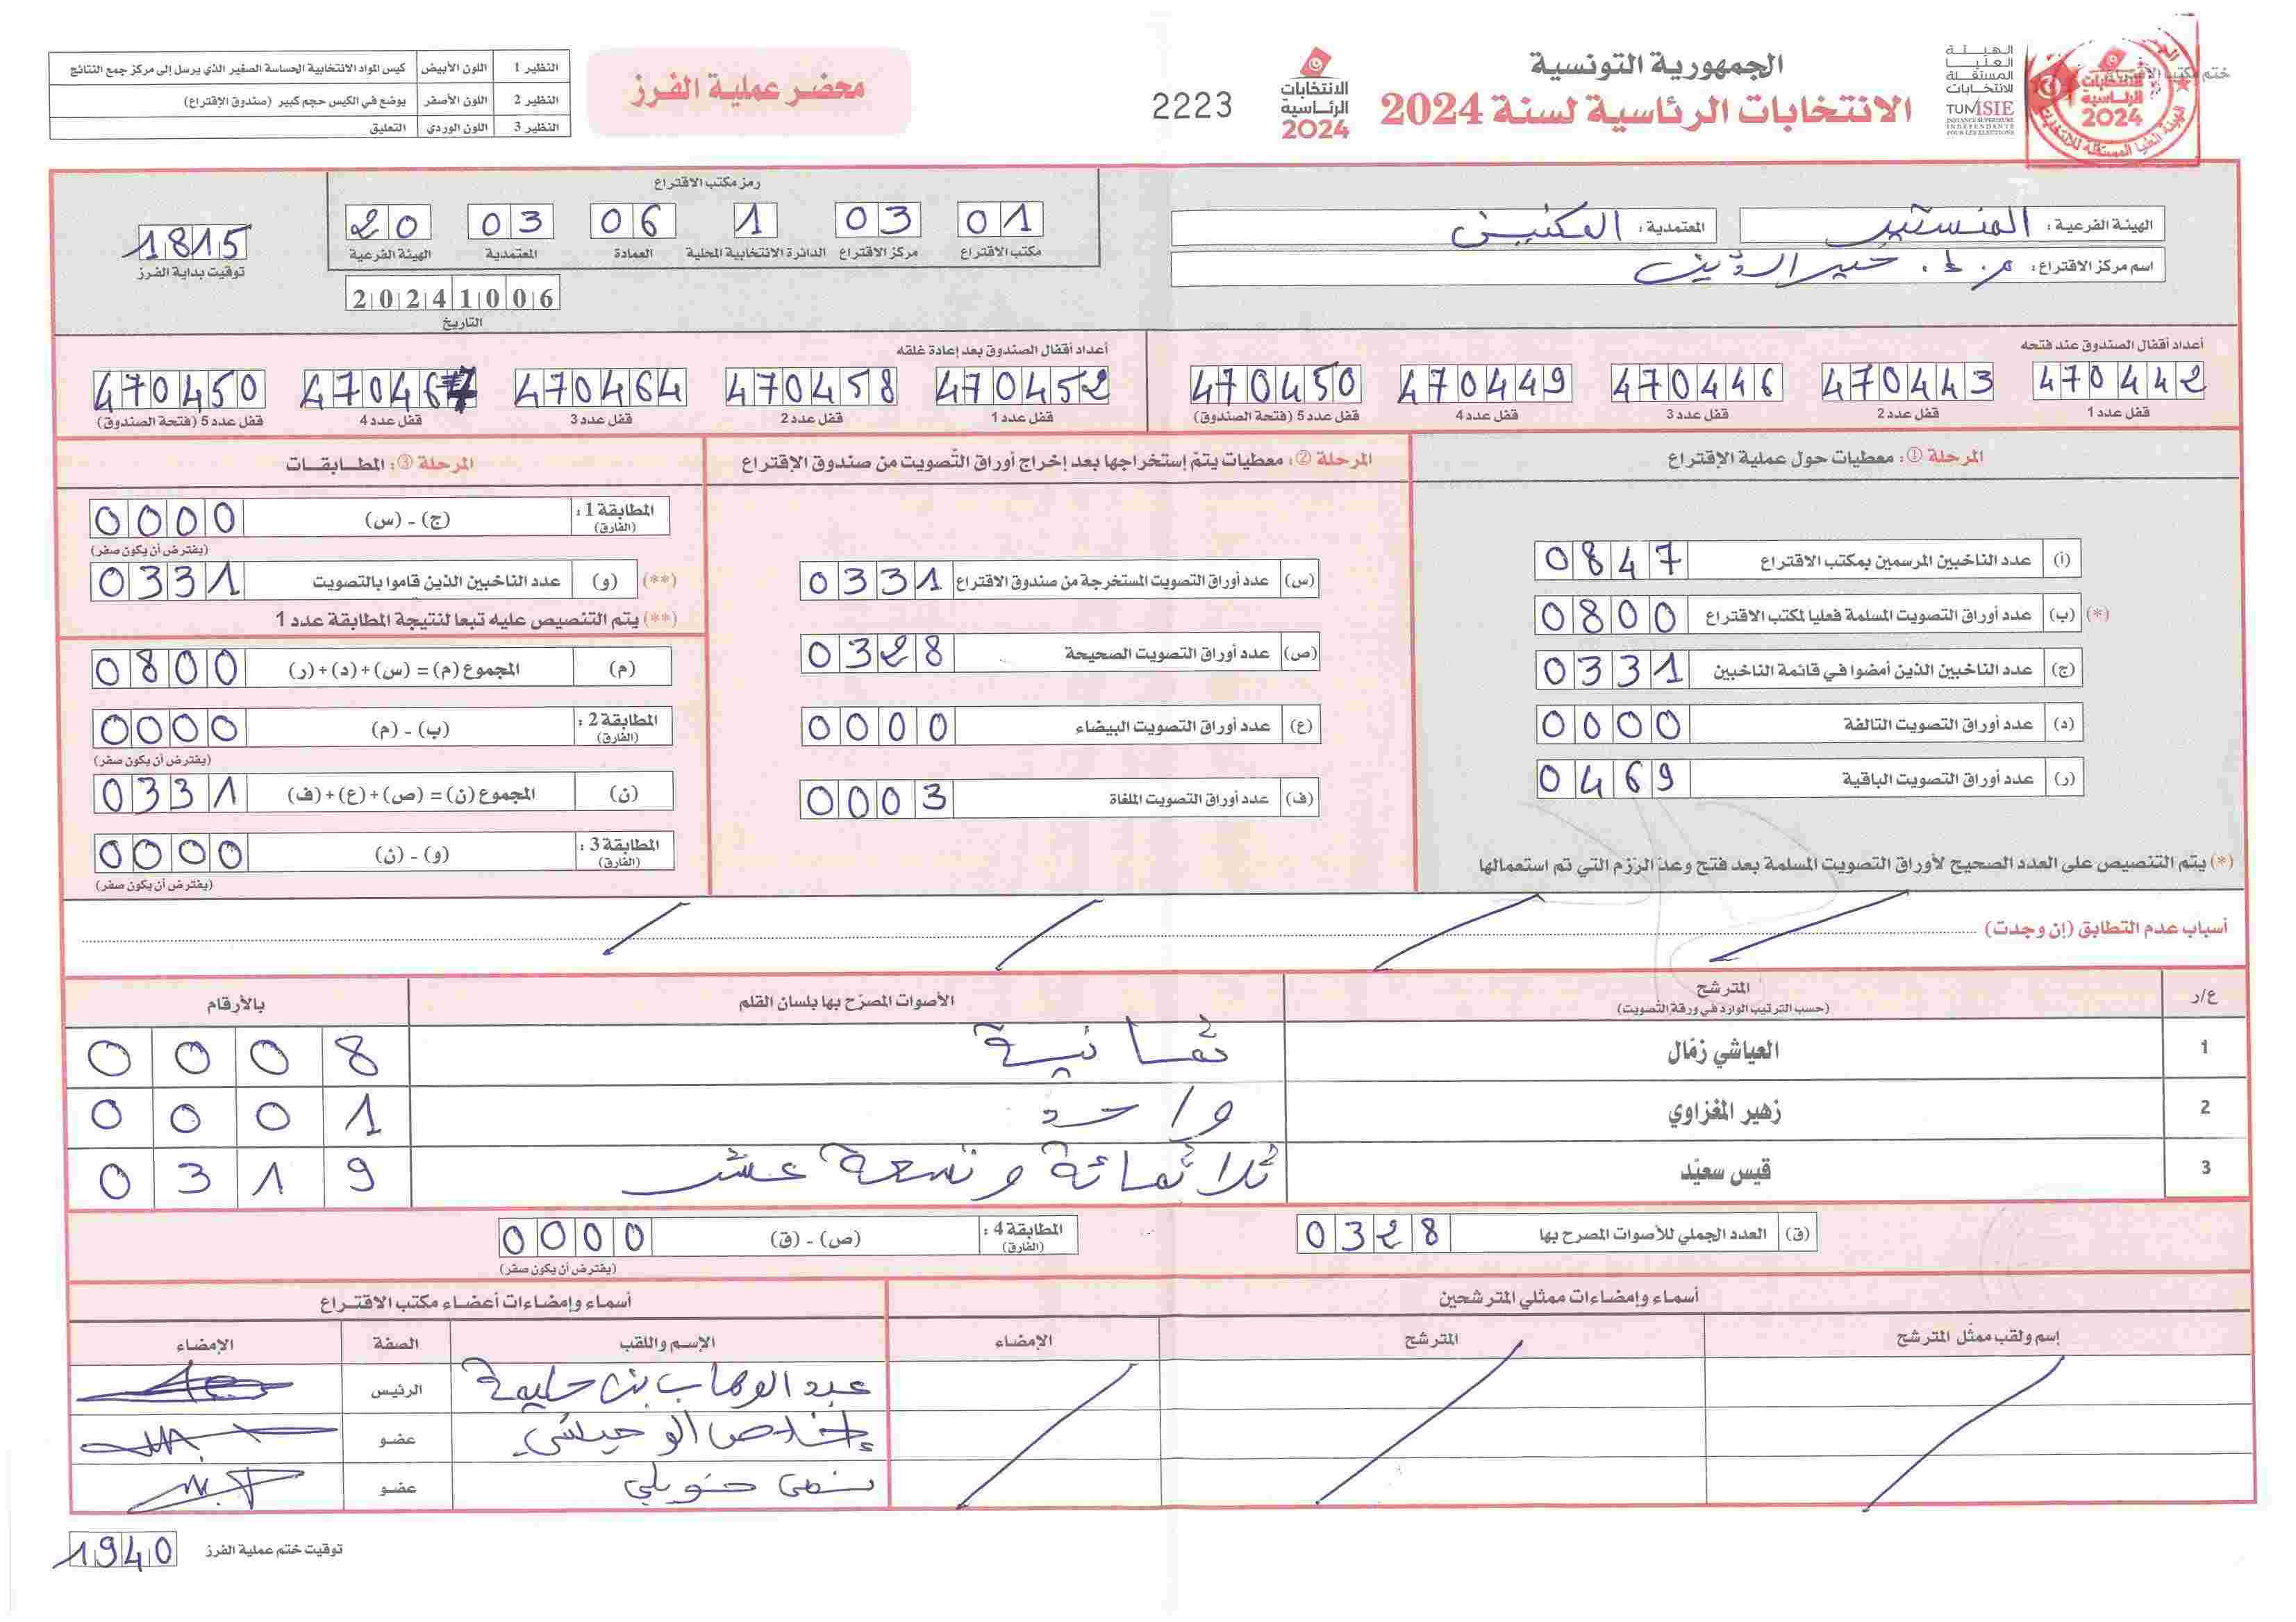 ختم مكتب الاقتراع
الهيئة العليا المستقلة للانتخابات
TUNISIE
INSTANCE SUPERIEURE INDEPENDANTE POUR LES ELECTIONS
الجمهورية التونسية
الانتخابات الرئاسية لسنة 2024
الانتخابات الرئاسية 2024
2223
محضر عملية الفرز
النظير 1 اللون الأبيض كيس المواد الانتخابية الحساسة الصغير الذي يرسل إلى مركز جمع النتائج
النظير 2 اللون الأصفر يوضع في الكيس حجم كبير (صندوق الإقتراع)
النظير 3 اللون الوردي التعليق
الهيئة الفرعية: المنستير
المعتمدية: المكنين
اسم مركز الاقتراع: م. إ. خير الدين
رمز مكتب الاقتراع
01 03 1 06 03 20
مكتب الاقتراع مركز الاقتراع الدائرة الانتخابية المحلية العمادة المعتمدية الهيئة الفرعية
20241006
التاريخ
1815
توقيت بداية الفرز
أعداد أقفال الصندوق عند فتحه
470442 470443 470446 470449 470450
قفل عدد 1 قفل عدد 2 قفل عدد 3 قفل عدد 4 قفل عدد 5 (فتحة الصندوق)
أعداد أقفال الصندوق بعد إعادة غلقه
470452 470458 470464 470467 470450
قفل عدد 1 قفل عدد 2 قفل عدد 3 قفل عدد 4 قفل عدد 5 (فتحة الصندوق)
المرحلة ①: معطيات حول عملية الإقتراع
(أ) عدد الناخبين المرسمين بمكتب الاقتراع 0847
(*) (ب) عدد أوراق التصويت المسلمة فعليا لمكتب الاقتراع 0800
(ج) عدد الناخبين الذين أمضوا في قائمة الناخبين 0331
(د) عدد أوراق التصويت التالفة 0000
(ر) عدد أوراق التصويت الباقية 0469
(*) يتم التنصيص على العدد الصحيح لأوراق التصويت المسلمة بعد فتح وعد الرزم التي تم استعمالها
المرحلة ②: معطيات يتم إستخراجها بعد إخراج أوراق التصويت من صندوق الإقتراع
(س) عدد أوراق التصويت المستخرجة من صندوق الاقتراع 0331
(ص) عدد أوراق التصويت الصحيحة 0328
(ع) عدد أوراق التصويت البيضاء 0000
(ف) عدد أوراق التصويت الملغاة 0003
المرحلة ③: المطابقات
المطابقة 1: (الفارق) (ج) - (س) 0000
(يفترض أن يكون صفر)
(**) (و) عدد الناخبين الذين قاموا بالتصويت 0331
(**) يتم التنصيص عليه تبعا لنتيجة المطابقة عدد 1
(م) المجموع (م) = (س) + (د) + (ر) 0800
المطابقة 2: (الفارق) (ب) - (م) 0000
(يفترض أن يكون صفر)
(ن) المجموع (ن) = (ص) + (ع) + (ف) 0331
المطابقة 3: (الفارق) (و) - (ن) 0000
(يفترض أن يكون صفر)
أسباب عدم التطابق (إن وجدت)
ع/ر المترشح (حسب الترتيب الوارد في ورقة التصويت) الأصوات المصرح بها بلسان القلم بالأرقام
1 العياشي زمّال ثمانية 0008
2 زهير المغزاوي واحد 0001
3 قيس سعيّد ثلاثمائة وتسعة عشر 0319
(ق) العدد الجملي للأصوات المصرح بها 0328
المطابقة 4: (الفارق) (ص) - (ق) 0000
(يفترض أن يكون صفر)
أسماء وإمضاءات ممثلي المترشحين
إسم ولقب ممثّل المترشح المترشح الإمضاء
أسماء وإمضاءات أعضاء مكتب الاقتراع
الإسم واللقب الصفة الإمضاء
عبد الوهاب بن حليمة الرئيس
إخلاص الوحيشي عضو
عضو
توقيت ختم عملية الفرز 1940